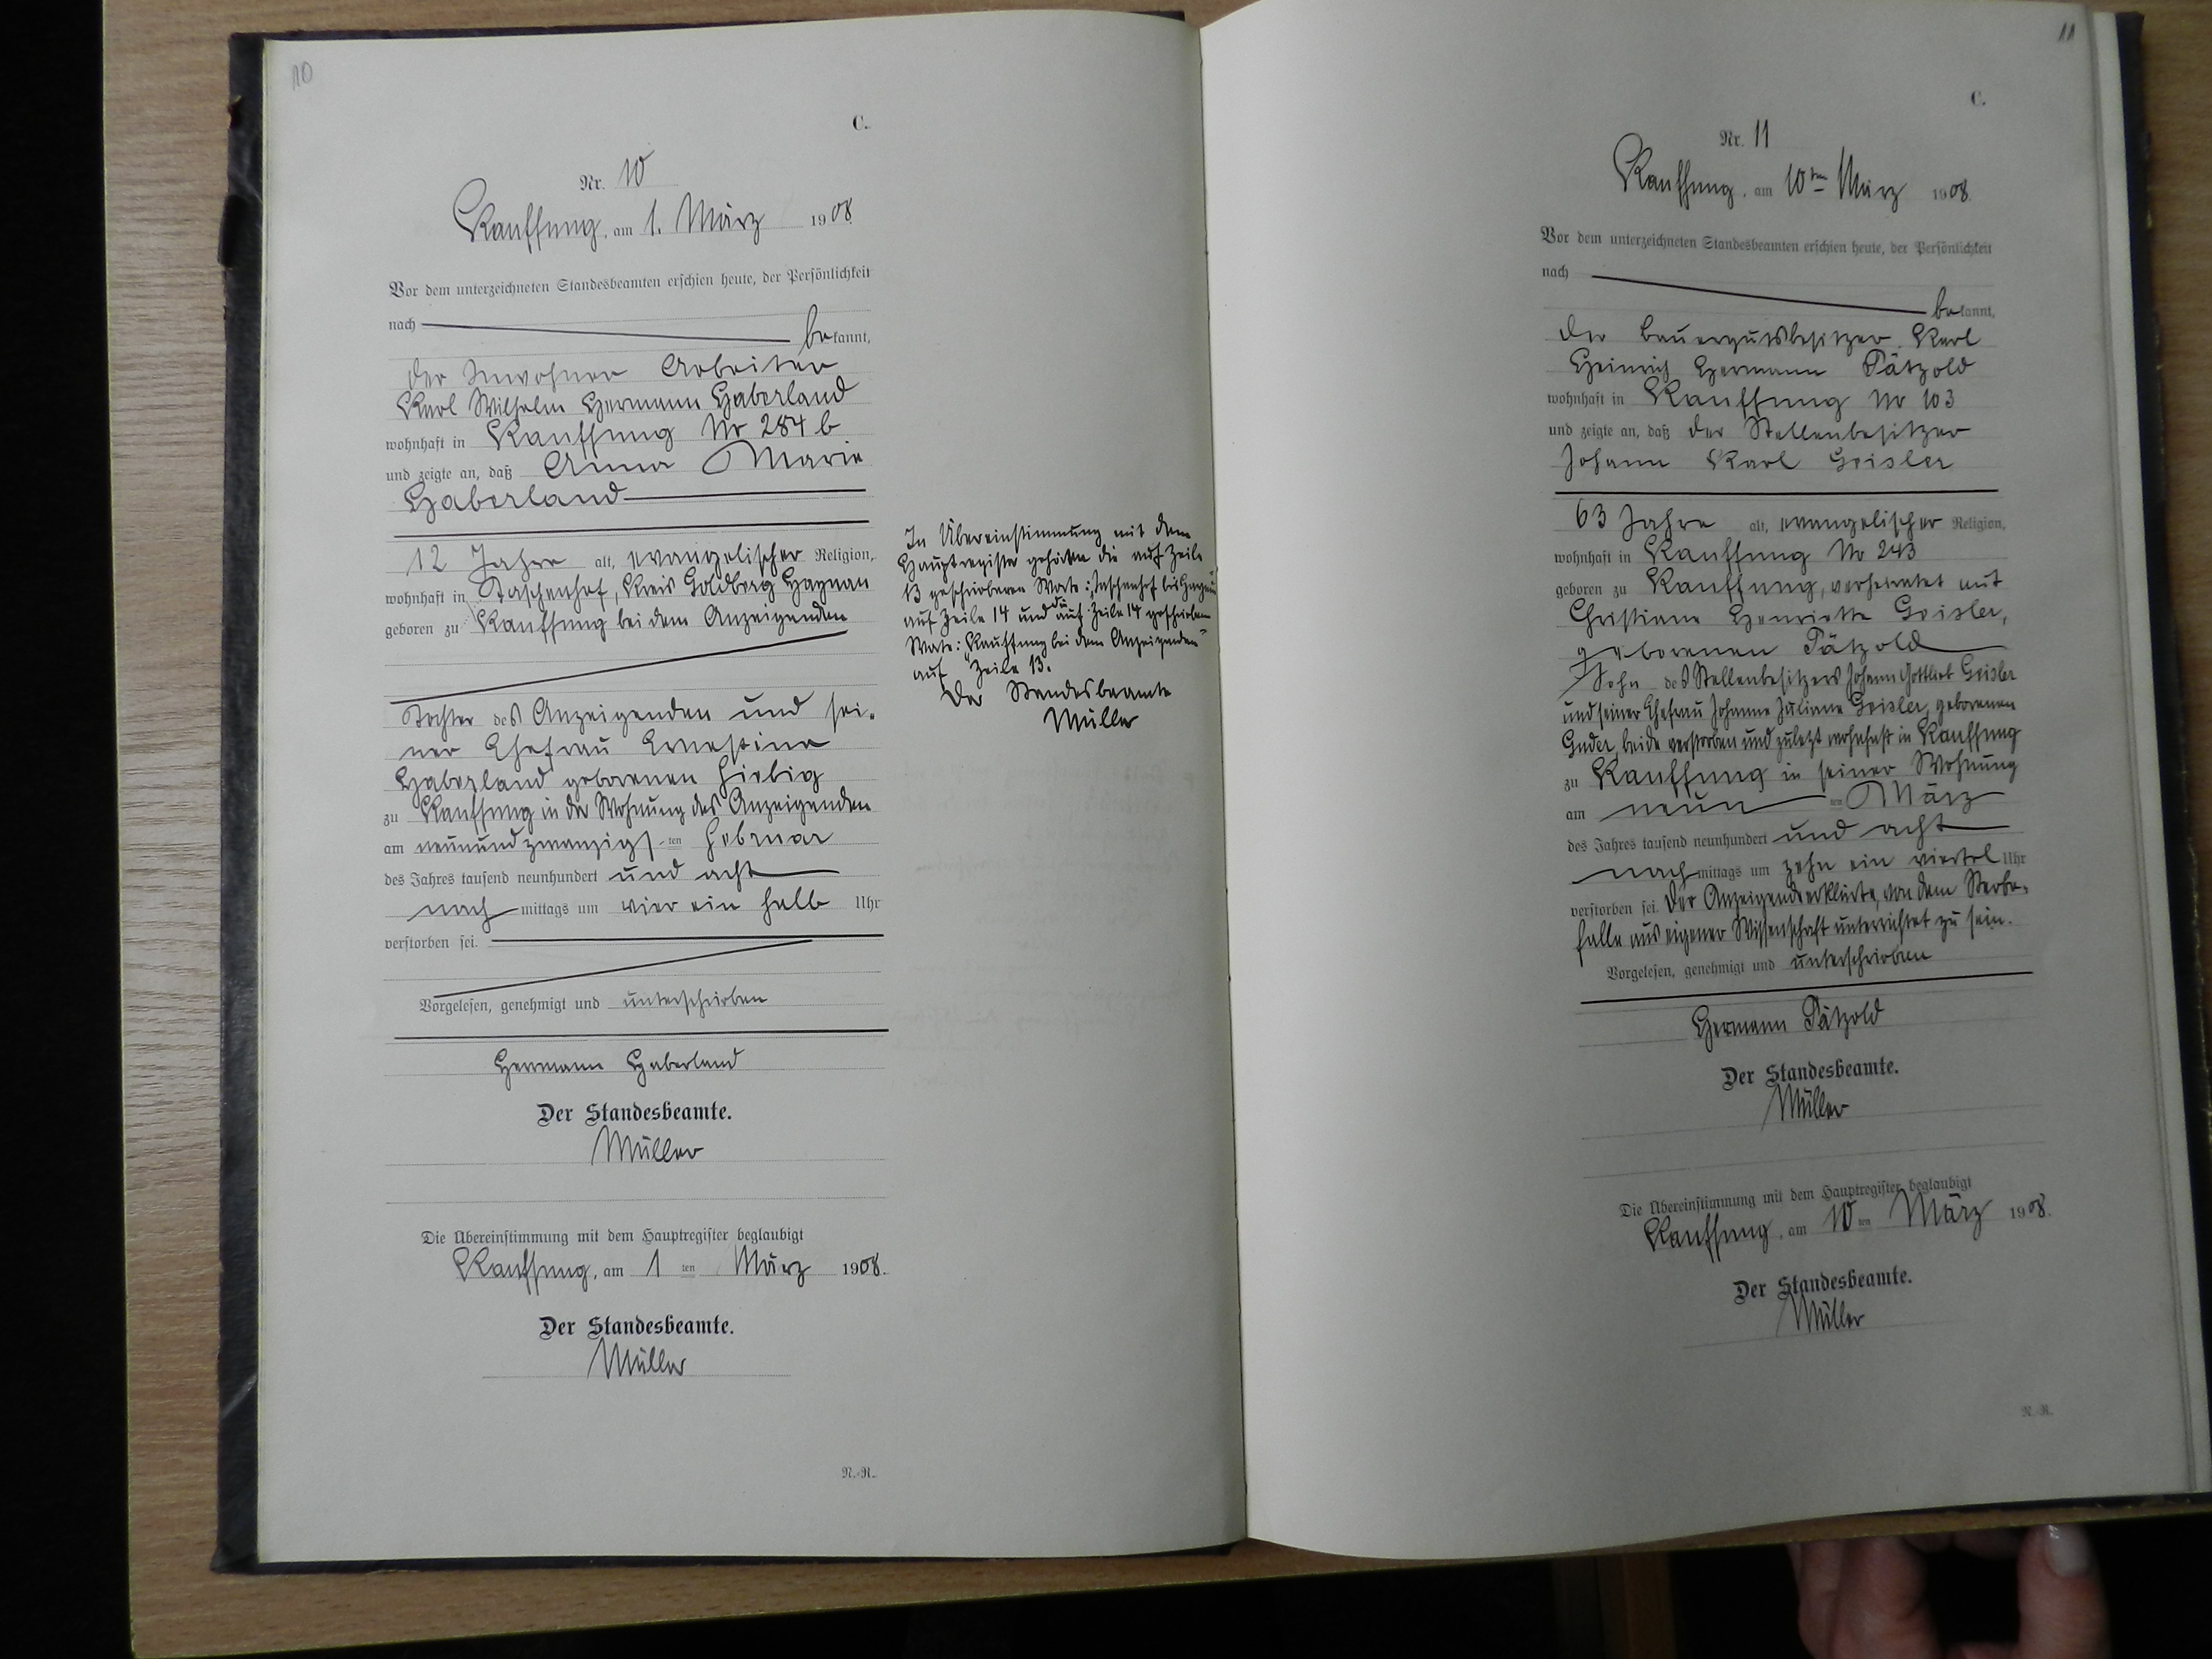 10
C.
Nr. 10
Kauffung, am 1. März 1908
Vor dem unterzeichneten Standesbeamten erschien heute, der Persönlichkeit
nach bekannt,
der Inwohner Arbeiter
Karl Wilhelm Hermann Haberland
wohnhaft in Kauffung No 284 b
und zeigte an, daß Anna Marie
Haberland
12 Jahre alt, evangelischer Religion,
wohnhaft in Taschenhof, Kreis Goldberg Haynau
geboren zu Kauffung bei dem Anzeigenden
Tochter des Anzeigenden und sei-
ner Ehefrau Ernestine
Haberland geborenen Fiebig
zu Kauffung in der Wohnung des Anzeigenden
am neunundzwanzigsten Februar
des Jahres tausend neunhundert und acht
nachmittags um vier ein halb Uhr
verstorben sei.
Vorgelesen, genehmigt und unterschrieben
Hermann Haberland
Der Standesbeamte.
Müller
Die Übereinstimmung mit dem Hauptregister beglaubigt
Kauffung, am 1 ten März 1908.
Der Standesbeamte.
Müller
N.-R.
In Übereinstimmung mit dem
Hauptregister gehören die auf Zeile
13 geschriebenen Worte: "Taschenhof bis Haynau"
auf Zeile 14 und die auf Zeile 14 geschriebenen
Worte: "Kauffung bei dem Anzeigenden"
auf Zeile 13.
Der Standesbeamte
Müller
11
C.
Nr. 11
Kauffung, am 10ten März 1908.
Vor dem unterzeichneten Standesbeamten erschien heute, der Persönlichkeit
nach bekannt,
der Bauergutsbesitzer Karl
Heinrich Hermann Pätzold
wohnhaft in Kauffung No 103
und zeigte an, daß der Stellenbesitzer
Johann Karl Geisler
63 Jahre alt, evangelischer Religion,
wohnhaft in Kauffung No 243
geboren zu Kauffung, verheiratet mit
Christiane Henriette Geisler,
geborenen Pätzold
Sohn des Stellenbesitzers Johann Gottlieb Geisler
und seiner Ehefrau Johanne Juliane Geisler, geborenen
Guder, beide verstorben und zuletzt wohnhaft in Kauffung
zu Kauffung in seiner Wohnung
am neunten März
des Jahres tausend neunhundert und acht
nachmittags um zehn ein viertel Uhr
verstorben sei. Der Anzeigende erklärte, von dem Sterbe-
falle aus eigener Wissenschaft unterrichtet zu sein.
Vorgelesen, genehmigt und unterschrieben
Hermann Pätzold
Der Standesbeamte.
Müller
Die Übereinstimmung mit dem Hauptregister beglaubigt
Kauffung, am 10 ten März 1908.
Der Standesbeamte.
Müller
N.-R.